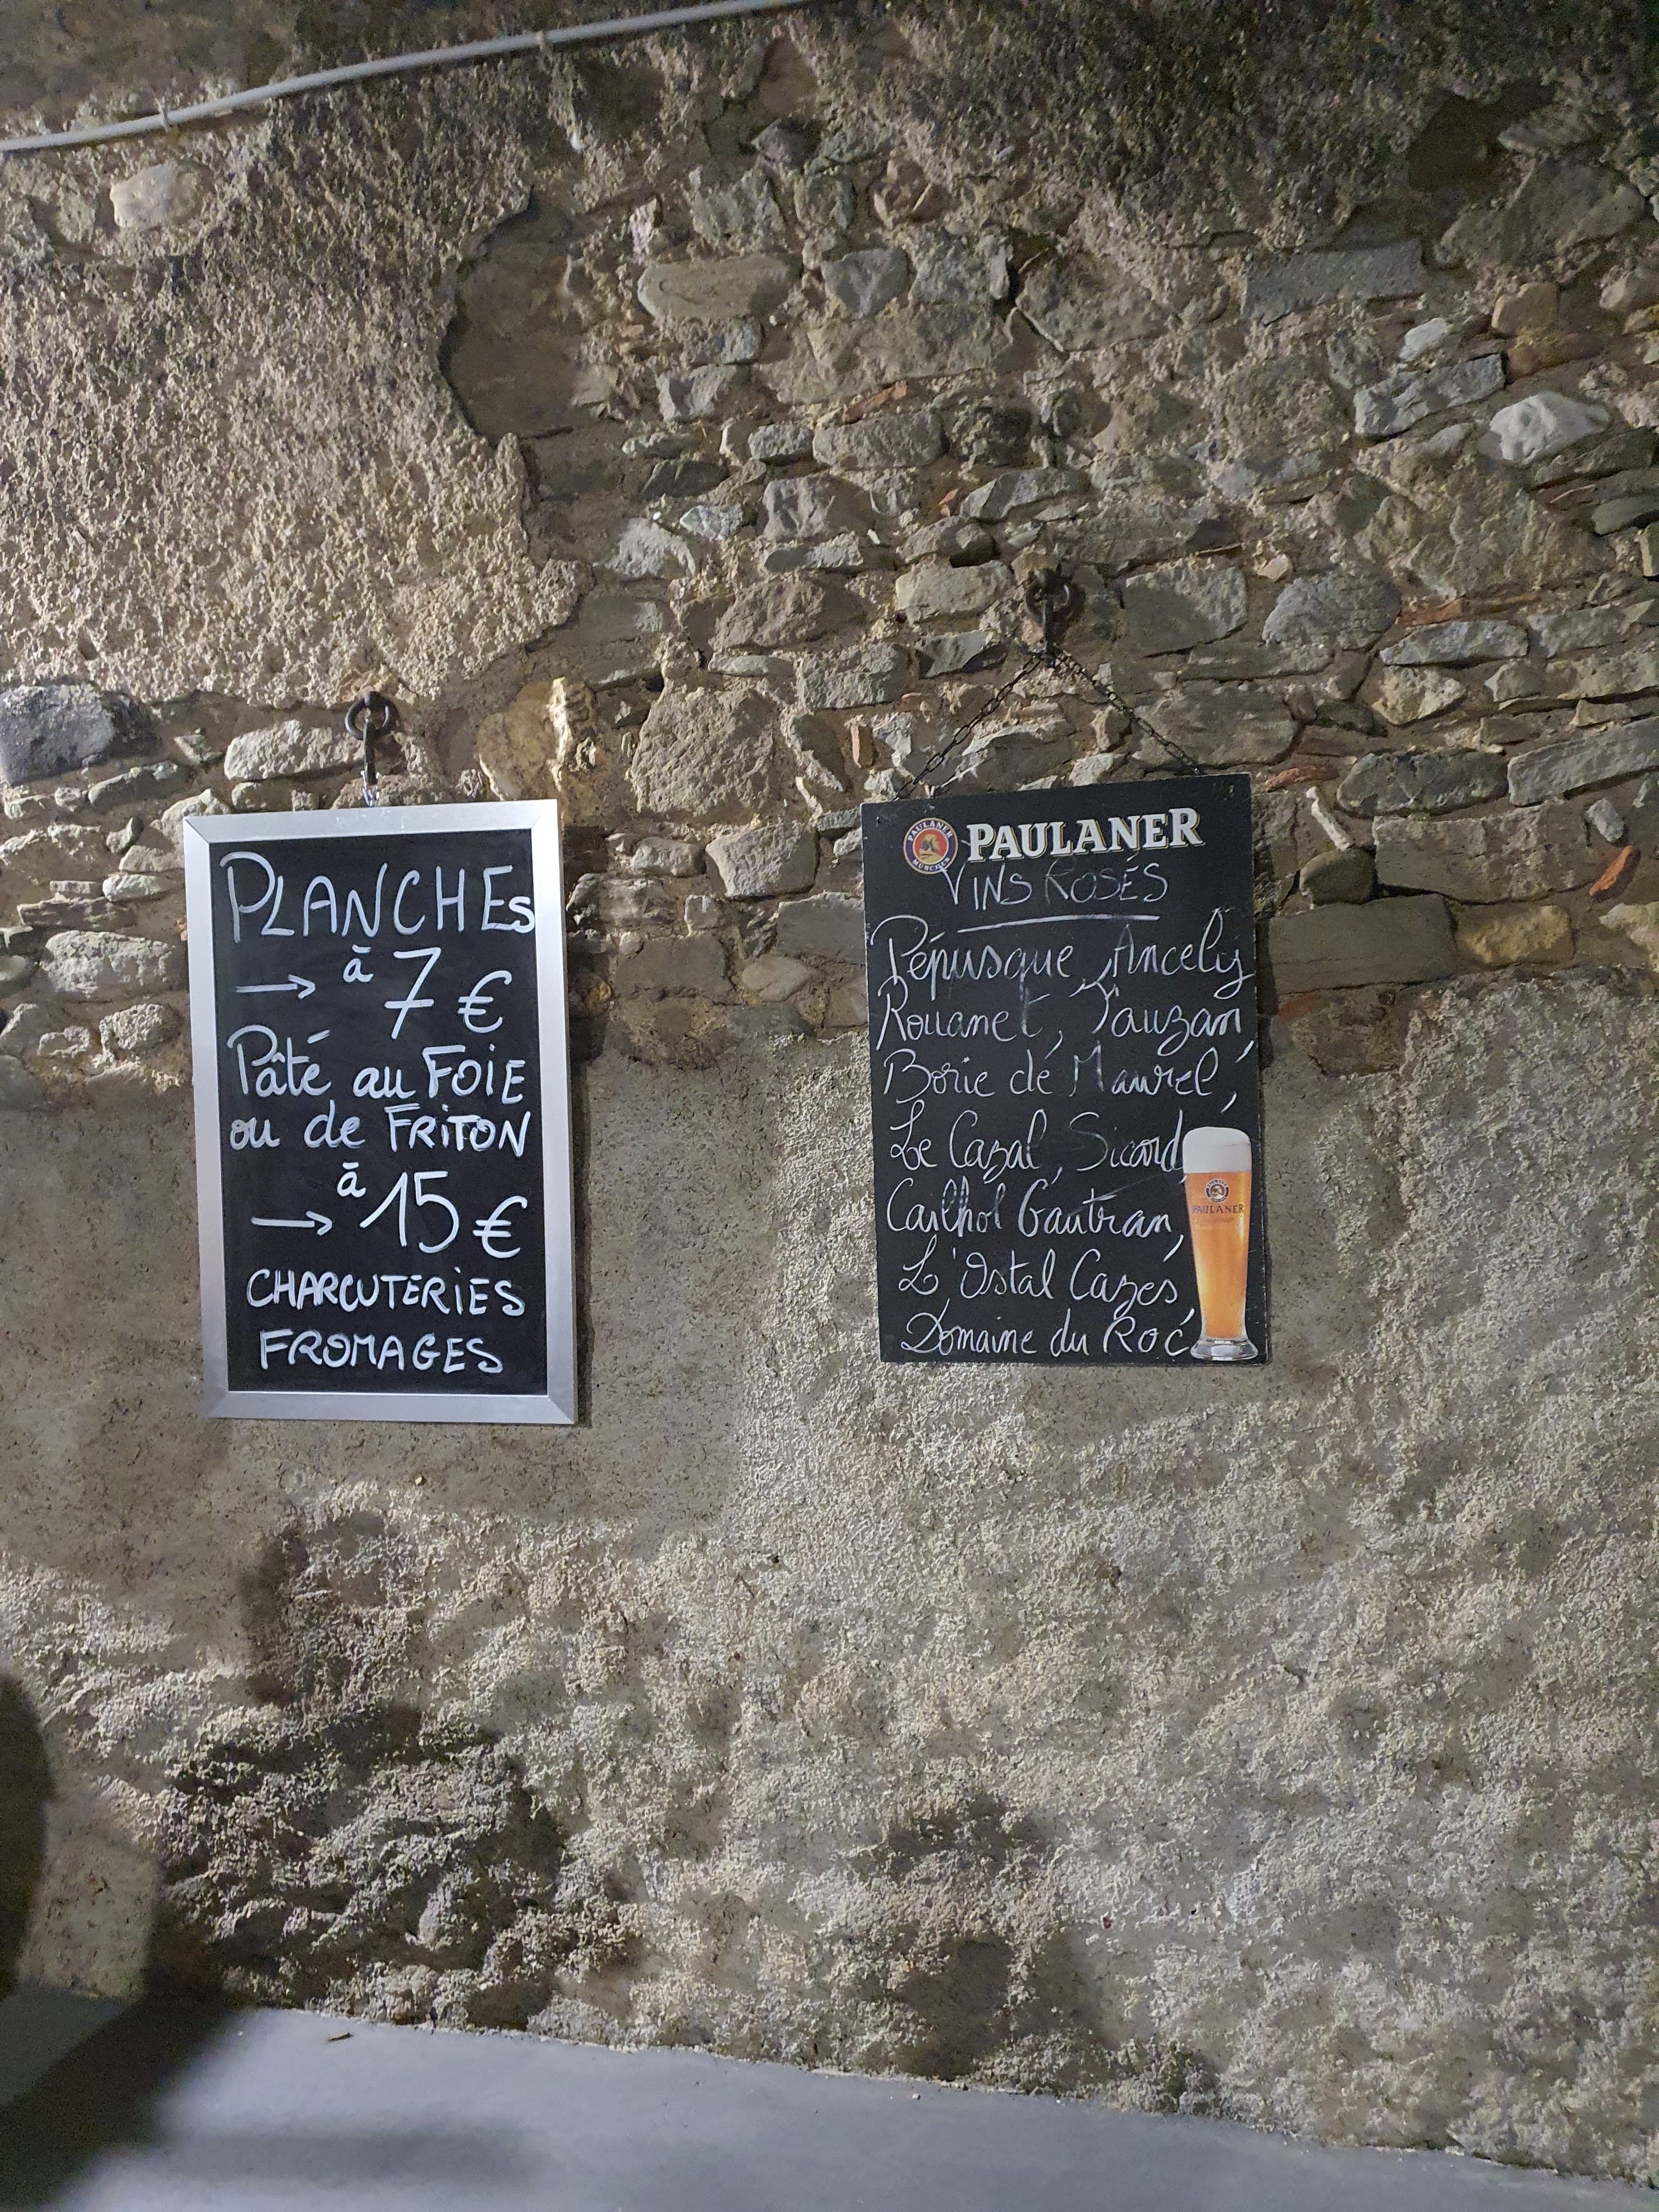 PLANCHEs
→ à 7 €
Pâté au FOIE
ou de FRITON
→ à 15 €
CHARCUTERIES
FROMAGES
PAULANER
PAULANER
MÜNCHEN
VINS ROSÉS
Pépusque, Ancely
Rouanet, Tauzan,
Borie de Maurel,
Le Cazal, Sicard,
Cailhol Gautran,
L'Ostal Cazes,
Domaine du Roc
PAULANER